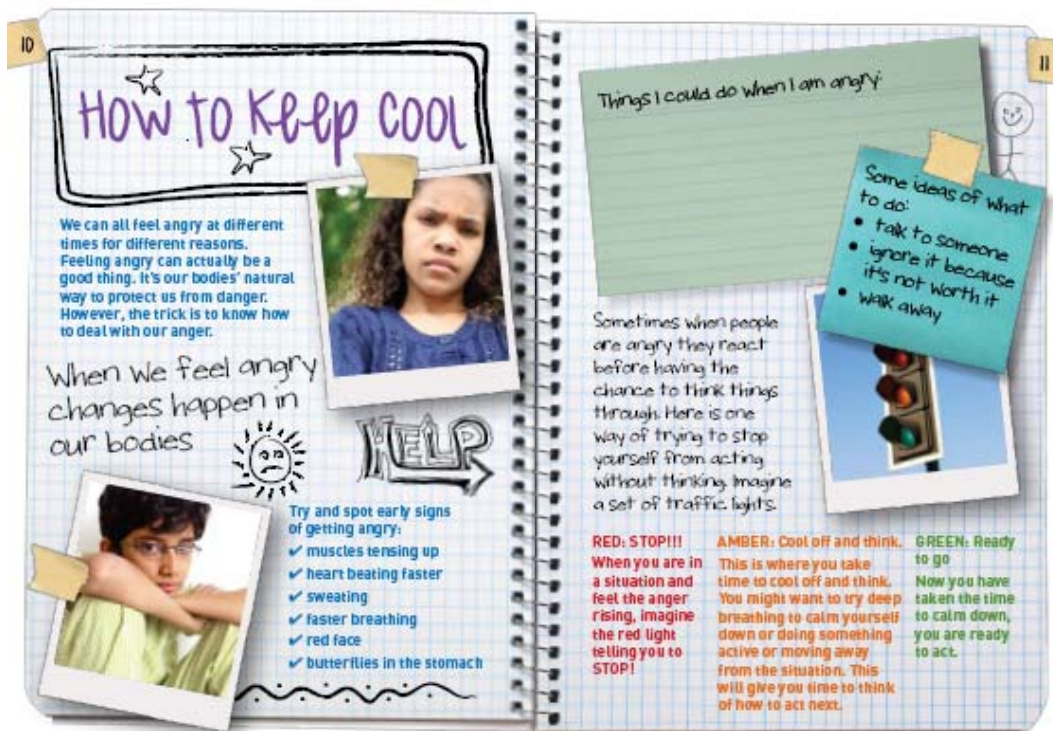 10
HOW TO KEEP COOL
We can all feel angry at different
times for different reasons.
Feeling angry can actually be a
good thing. It's our bodies' natural
way to protect us from danger.
However, the trick is to know how
to deal with our anger.
When we feel angry
changes happen in
our bodies
HELP
Try and spot early signs
of getting angry:
✔ muscles tensing up
✔ heart beating faster
✔ sweating
✔ faster breathing
✔ red face
✔ butterflies in the stomach
11
Things I could do when I am angry:
Some ideas of what
to do:
• talk to someone
• ignore it because
it's not worth it
• walk away
Sometimes when people
are angry they react
before having the
chance to think things
through. Here is one
way of trying to stop
yourself from acting
without thinking. Imagine
a set of traffic lights.
RED: STOP!!!
When you are in
a situation and
feel the anger
rising, imagine
the red light
telling you to
STOP!
AMBER: Cool off and think.
This is where you take
time to cool off and think.
You might want to try deep
breathing to calm yourself
down or doing something
active or moving away
from the situation. This
will give you time to think
of how to act next.
GREEN: Ready
to go
Now you have
taken the time
to calm down,
you are ready
to act.